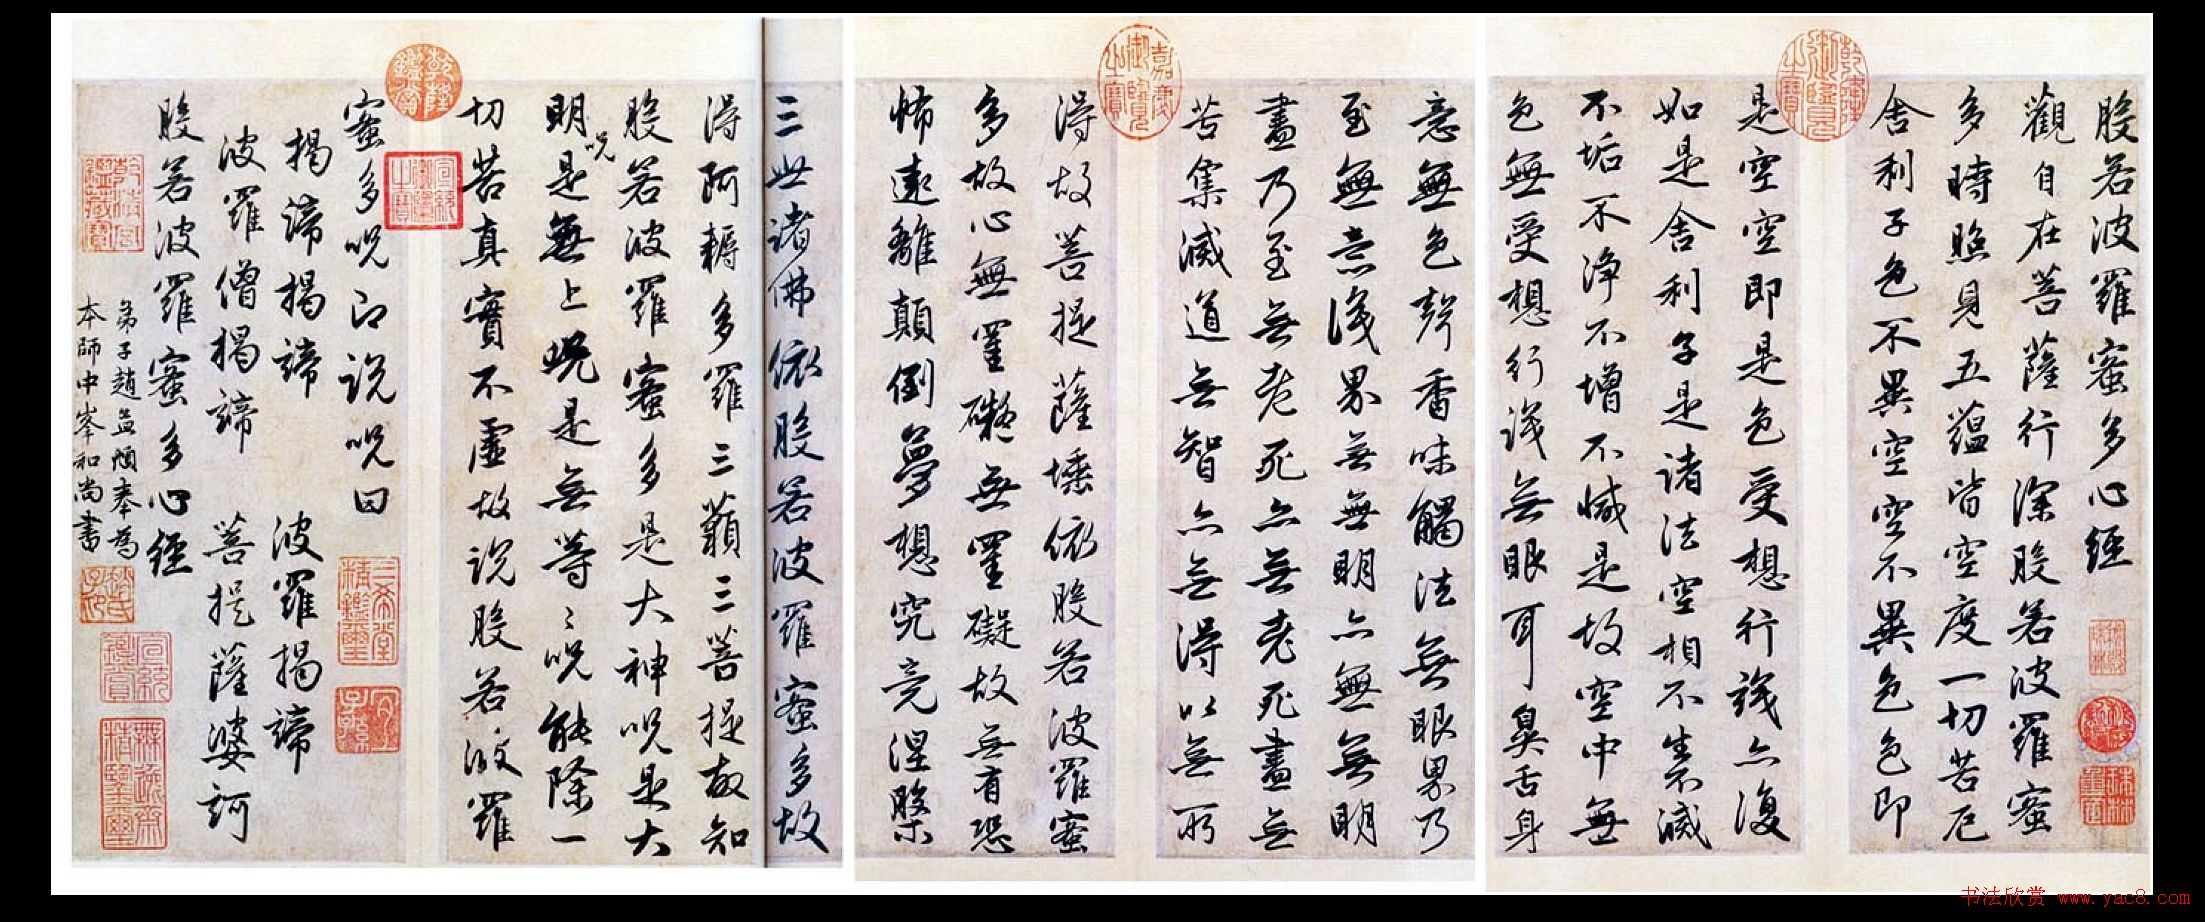 般若波羅蜜多心經
觀自在菩薩行深般若波羅蜜
多時照見五蘊皆空度一切苦厄
舍利子色不異空空不異色色即
是空空即是色受想行識亦復
如是舍利子是諸法空相不生滅
不垢不淨不增不減是故空中無
色無受想行識無眼耳鼻舌身
意無色聲香味觸法無眼界乃
至無意識界無無明亦無無明
盡乃至無老死亦無老死盡無
苦集滅道無智亦無得以無所
得故菩提薩埵依般若波羅蜜
多故心無罣礙無罣礙故無有恐
怖遠離顛倒夢想究竟涅槃
三世諸佛依般若波羅蜜多故
得阿耨多羅三藐三菩提故知
般若波羅蜜多是大神呪是大
明呪是無上呪是無等等呪能除一
切苦真實不虛故說般若波羅
蜜多呪即說呪曰
揭諦揭諦 波羅揭諦
波羅僧揭諦 菩提薩婆訶
般若波羅蜜多心經
弟子趙孟頫奉為
本師中峯和尚書
乾隆御覽之寶
嘉慶御覽之寶
乾隆鑑賞
宣統御覽之寶
三希堂精鑑璽
宜子孫
乾清宮鑑藏寶
趙氏子昂
宣統鑑賞
無逸齋精鑒璽
书法欣赏 www.yac8.com